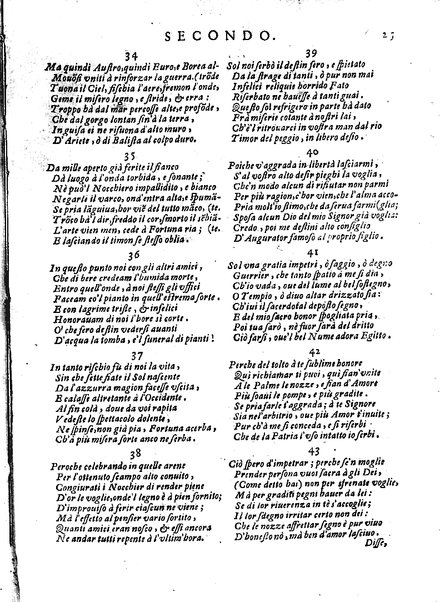 SECONDO. 25
34
Ma quindi Austro, quindi Euro, e Borea altrōde
Mouõsi vniti à rinforzar la guerra.
Tuona il Ciel, fischia l'aere, fremon l'onde,
Geme il misero legno, e stride, & erra:
Troppo bà dal mar percosse alte, e profōde,
Che dal gorgo lontan sin'à la terra,
In guisa ei ne risuona d'alto muro,
D'Ariete, ò di Balista al colpo duro.
35
Da mille aperto già ferite il fianco
Dà luogo à l'onda torbida, e sonante;
Nè può'l Nocchiero impallidito, e bianco
Negarli il varco, ond'entra alta, e
Se pria lãguiua, hor viē del tutto māca,
L'arte vien men, cede à Fortuna ria;
E lasciando il timon se stesso oblia.
36
In questo punto noi con gli altri amici,
Che di bere credeam l'humida morte,
Entro quell'onde, à noi stessi gli vffici
Faceam co'l pianto in quell'estrema sorte.
E con lagrime triste, & infelici
Honorauam di noi l'hore sì corte.
O che fero destin vedersi auanti
D'acqua la tomba, e'l funeral di pianti!
37
In tanto rischio fù di noi la vita,
Sin che sette fiate il Sol nascente
Da l'azzurra magion facesse vscita,
E calasse altretante à l'Occidente.
Al fin colà, doue da voi rapita
Vedeste lo spettacolo dolente,
Ne spinse, non già pia, Fortuna acerba,
Ch'à più misera sorte anco ne serba.
38
Peroche celebrando in quelle arene
Per l'ottenuto scampo alto conuito,
Congiurati i Nocchier di render piene
D'or le voglie, onde'l legno è à pien fornito;
D'improuiso à ferir ciascun ne viene;
Mà l'effetto al pensier vario sortito,
Quanti amici eran nosco, & essi ancora
Ne andar tutti repente à l'vltim'hora.
39
Sol noi serbò il destin fero, e spietato
Da la strage di tanti, ò pur non mai
Infelici reliquie horrido Fato
Riserbato ne hauesse à tanti guai.
Questo sol refrigero in parte hà dato
Frà miserie cotante à nostri lai,
Ch'è'l ritrouarci in vostra man dal rio
Timor del peggio, in libero desio.
40
Poiche v'aggrada in libertà lasciarmi,
S'al vostro alto desir pieghi la voglia,
Che'n modo alcun di rifiutar non parmi
Per più ragion, e'hor vien, che l'alma acco-
Pria molt'isstorno, che da sirua farmi (glia;
Sposa alcun Dio del mio Signor già voglia:
Credo, poi me destini alto consiglio
D'Augurator famoso al proprio figlio.
41
Sol vna gratia impetri, ò saggio, ò degno
Guerrier, che tanto spatio à me si dia,
Ch'io vada, oue del lume al bel sostegno,
O Tempio, ò diuo altar drizzato sia:
Ch'iui il sacerdotal deposto segno,
E del mio sacro honor spogliata pria,
Poi tua sarò, nè fuor sarà del dritto
Ciò farsi, oue'l bel Nume adora Egitto.
42
Perche del tolto à te sublime honore
Qui richiamar ti puoi, qui sian'vnite
A le Palme le nozze, e sian d'Amore
Più soaui le pompe, e più gradite.
Se pria farle t'aggrada; à te Signore
Sia nel'arbitrio, oue più Amor t'inuite;
Pur ch'à me si conceda, e si riserbi
Che de la Patria l'vso intatto io serbi.
43
Ciò spero d'impetrar; perche se'n moglie
Prender persona vuoi sacra à gli Dei,
(Come detto hai) non per sfrenate voglie,
Mà per graditi pegni hauer da lei:
Se di lor riuerenza in tè s'accoglie;
Il lor sdegno irritar certo non dei:
Che le nozze affrettar segno è pur viuo
D'honesto nò, mà ben d'amor lasciuo.
Disse,